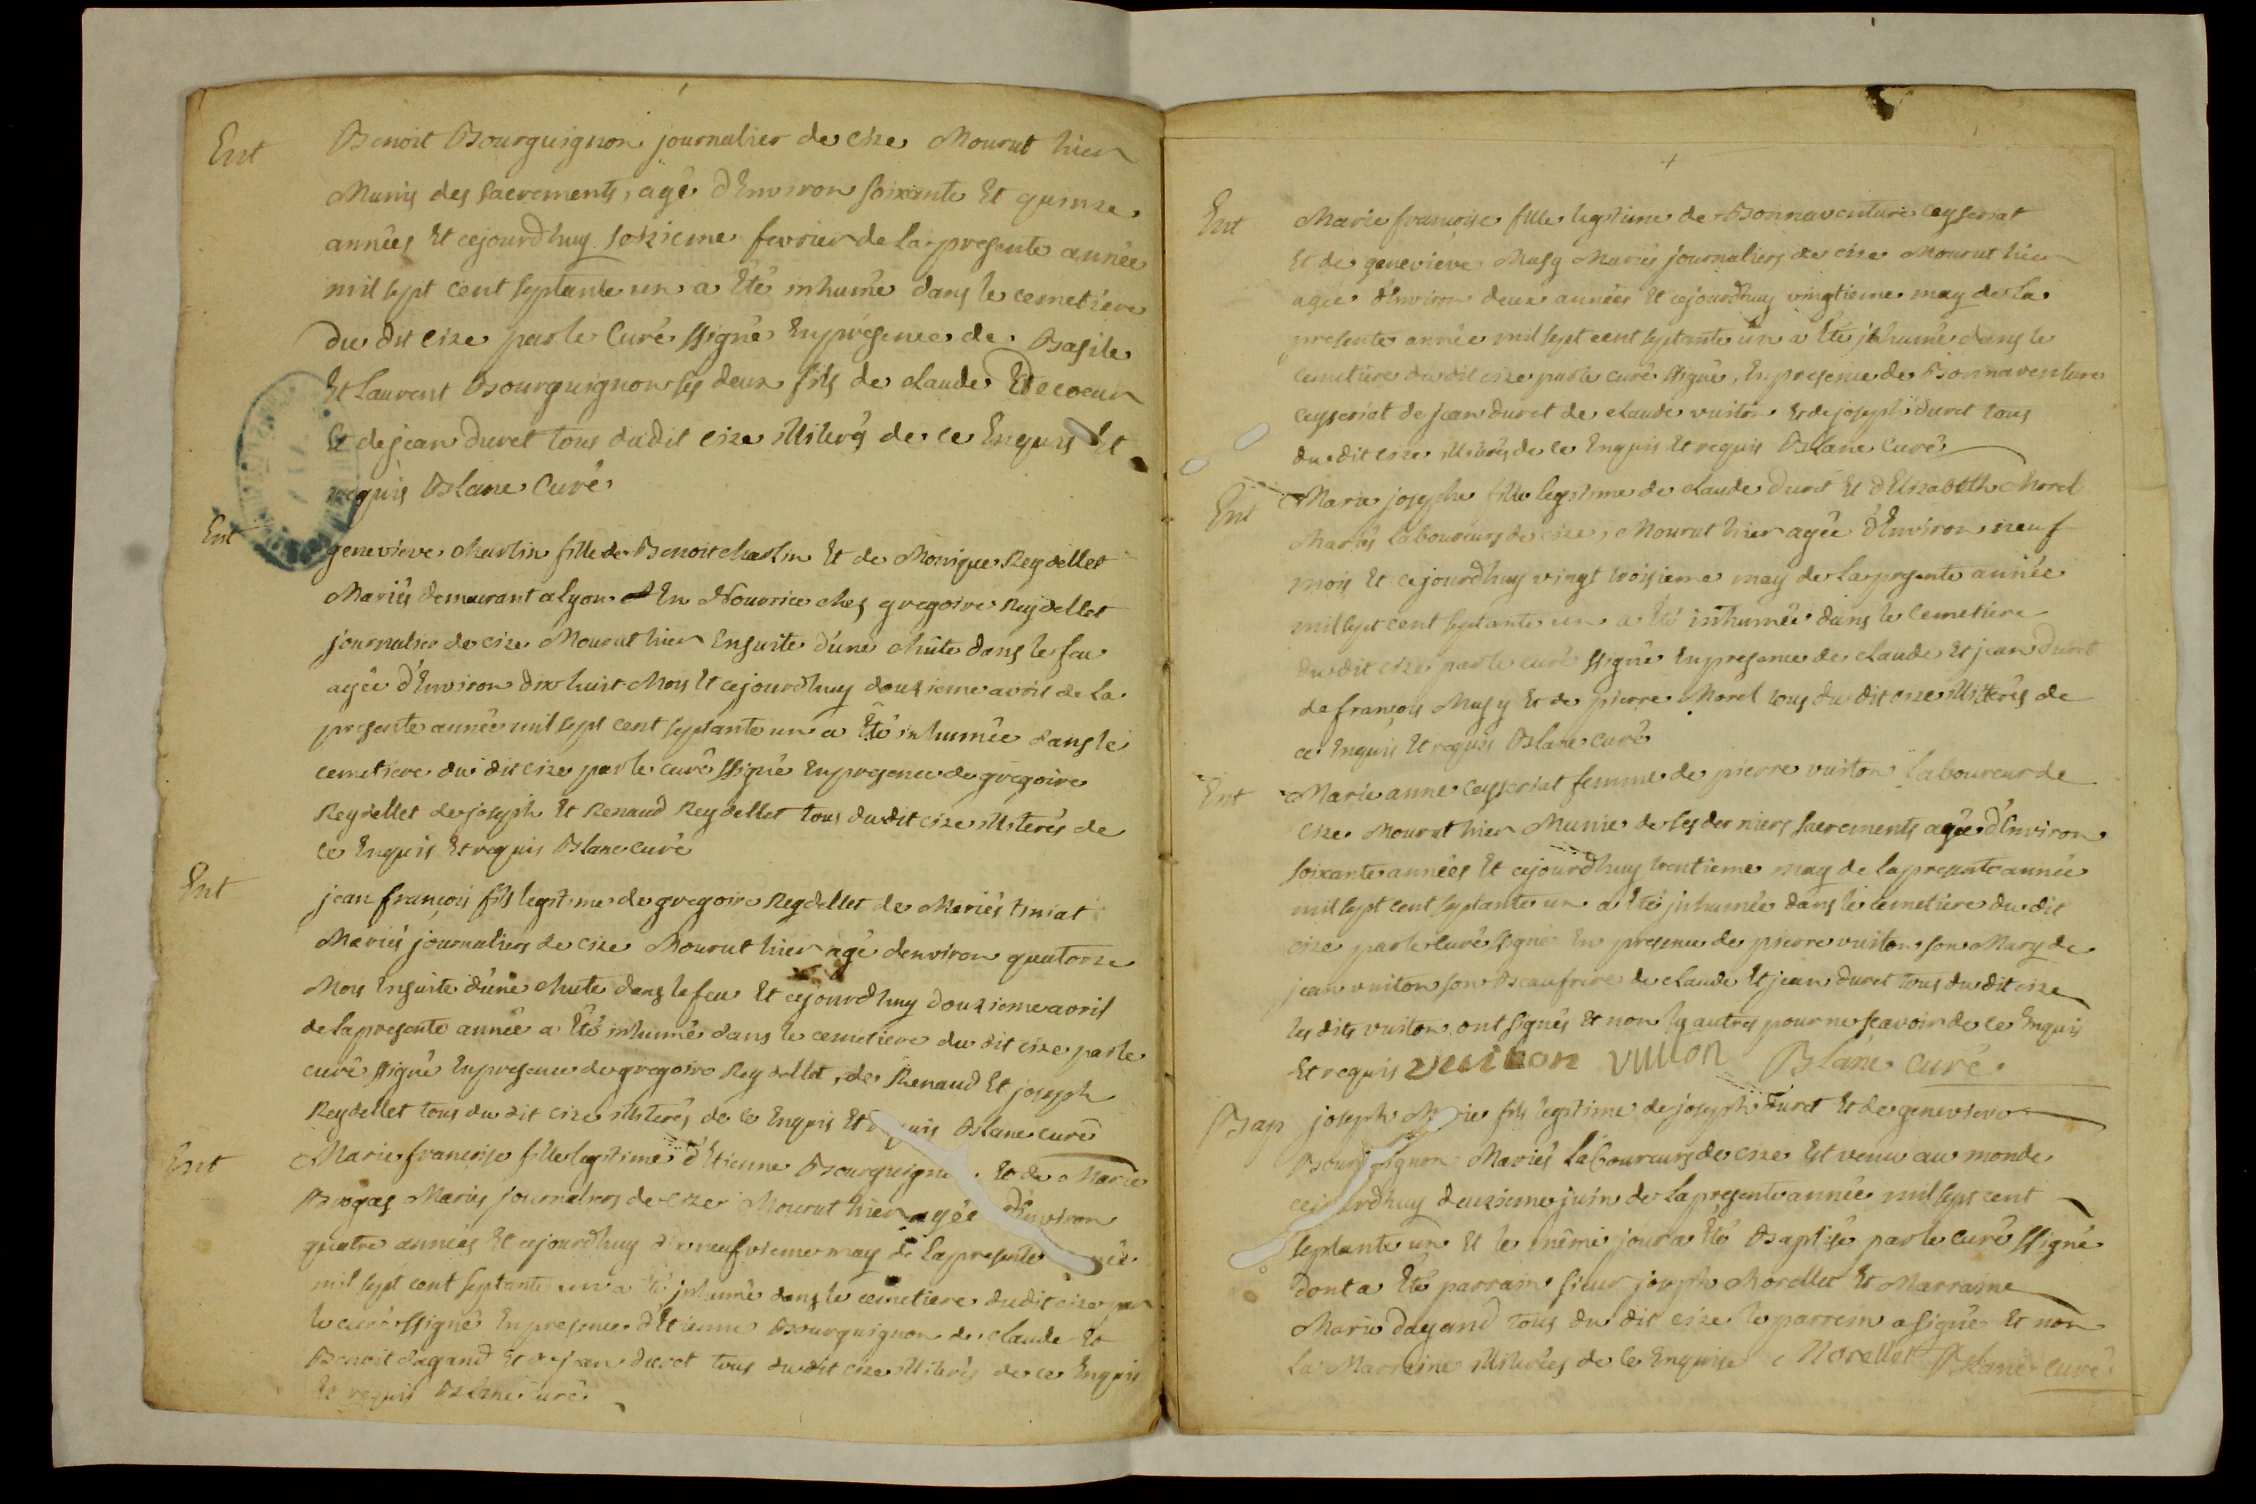 Ent
Benoit Bourguignon journalier de cize Mourut hier
Munis des sacrements, agé d'Environ soixante Et quinze
années Et cejourdhuy seizieme fevrier de la presente année
mil sept cent septante un a Eté inhumé dans le cemetiere
du dit cize par le Curé ssigné En présence de Basile
Et Laurent Bourguignon ses deux fils de claude
Et de jean duret tous dudit cize illiterés de ce Enquis Et
requis Blanc Curé
Ent
genevieve charlin fille de Benoit charlin Et de Monique Reydellet
Mariés demeurant a lyon En Nourrice chez gregoire Reydellet
journalier de cize Mourut hier Ensuite d'une chûte dans le feu
agée d'Environ dix huit Mois Et cejourdhuy douzieme avril de la
presente année mil sept cent septante un a Eté inhumée dans le
cemetiere du dit cize par le curé ssigné En presence de gregoire
Reydellet de joseph Et Renaud Reydellet tous du dit cize illiterés de
ce Enquis Et requis Blanc curé
Ent
jean françois fils legitime de gregoire Reydellet de Mariés
Mariés journaliers de cize Mourut hier agé denviron quatorze
Mois Ensuite d'une chute dans le feu Et cejourdhuy douzieme avril
de la presente année a Eté inhumé dans le cemetiere du dit cize par le
curé ssigné En presence de gregoire Reydellet, de Renaud Et joseph
Reydellet tous du dit cize illiterés de ce Enquis Et Blanc curé
Ent
Marie françoise fille legitime d'Etienne Et de Marie
Mariés journaliers de cize Mourut hier agée d'Environ
quatre années Et cejourdhuy may de la presente
mil sept cent septante un a été inhumé dans le cemetiere dudit cize par
le curé ssigné En presence d'Etienne Bourguignon de claude Et
Benoit dagand Et de jean duret tous du dit cize illiterés de ce Enquis
Et requis Blanc Curé
Ent
Marie françoise fille legitime de Bonnaventure ceyseriat
Et de genevieve Musy Mariés journaliers de cize Mourut hier
agée d'Environ deux années Et cejourdhuy vingtieme may de la
presente année mil sept cent septante un a Eté inhumé dans le
cemetiere du dit cize par le curé ssigné, En presence de Bonnaventure
ceyseriat de jean duret de claude vuiton Et de joseph duret tous
du dit cize illiterés de ce Enquis Et requis Blanc Curé
Ent
Marie josephe fille legitime de claude duret Et d'Elizabeth Morel
Mariés Laboureurs de cize, Mourut hier agée d'Environ neuf
mois Et cejourdhuy vingt troisieme may de la presente année
mil sept cent septante un a Eté inhumée dans le cemetiere
du dit cize par le curé ssigné En presence de claude Et jean duret
de françois Musy Et de pierre Morel tous du dit cize illiterés de
ce Enquis Et requis Blanc curé
Ent
Marie anne ceyseriat femme de pierre vuiton laboureur de
cize Mourut hier Munie de ses derniers sacrements agée d'Environ
soixante années Et cejourdhuy trentieme may de la presente année
mil sept cent septante un a Eté inhumée dans le cemetiere du dit
cize par le curé ssigné En presence de pierre vuiton son Mary de
jean vuiton son Beaufrere de claude Et jean duret tous du dit cize
les dits vuiton ont signés Et non les autres pour ne scavoir de ce Enquis
Et requis vuiton vuiton Blanc curé.
Bap
joseph fils legitime de joseph duret Et de genevieve
Mariés Laboureurs de cize Est venu au monde
deuzieme juin de la presente année mil sept cent
septante un Et le même jour a Eté Baptisé par le curé ssigné
dont a Eté parrain sieur joseph Morellet Et Marraine
Marie dagand tous du dit cize le parrein a signé Et non
La Marreine illiterées de ce Enquise Morellet Blanc curé